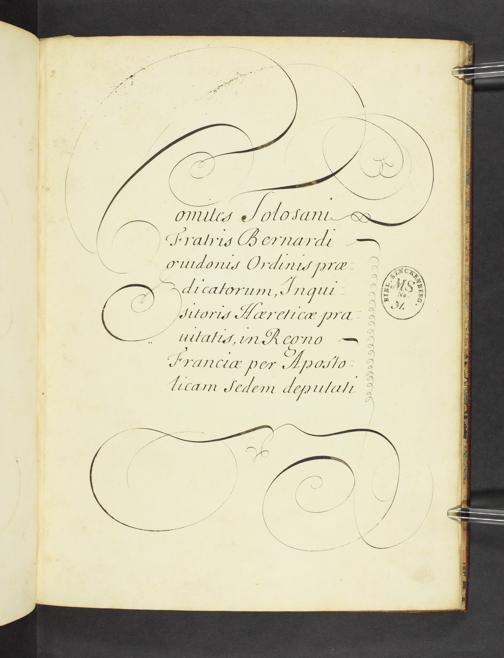 Comites Tolosani
Fratris Bernardi
Guidonis Ordinis præ:
dicatorum, Inqui:
sitoris Hæreticæ pra:
uitatis, in Regno
Franciæ per Aposto:
licam Sedem deputati
BIBL. SENCKENBERG.
MS
No.
31.